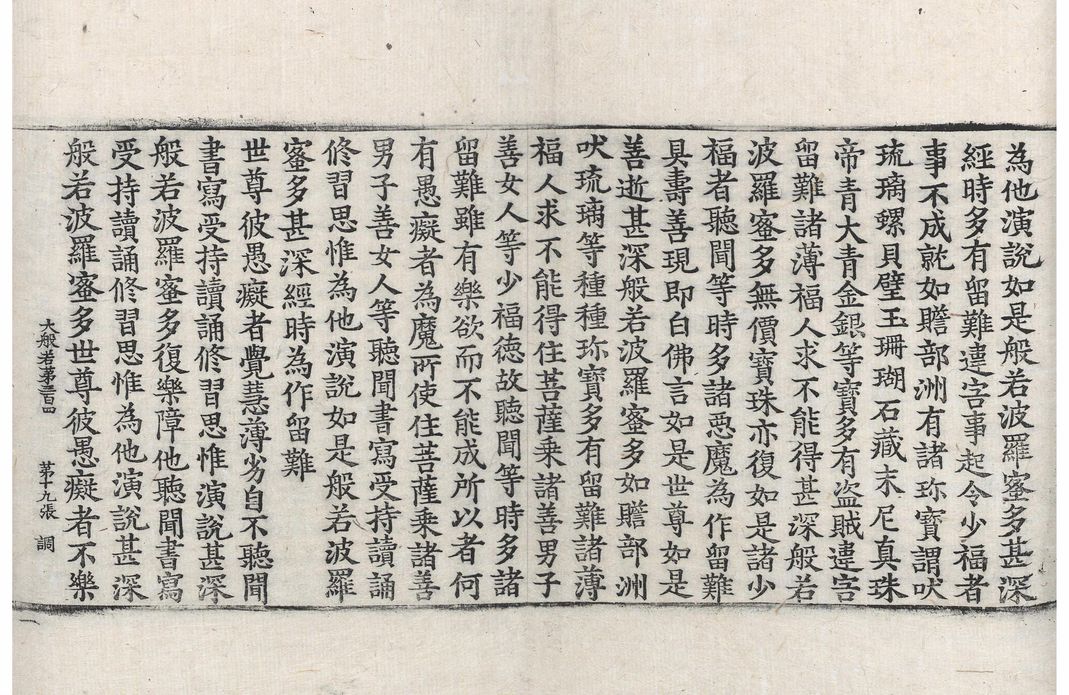 為他演說如是般若波羅蜜多甚深
經時多有留難違害事起令少福者
事不成就如贍部洲有諸珎寶謂吠
琉璃螺貝璧玉珊瑚石藏末尼真珠
帝青大青金銀等寶多有盜賊違害
留難諸薄福人求不能得甚深般若
波羅蜜多無價寶珠亦復如是諸少
福者聽聞等時多諸惡魔為作留難
具壽善現即白佛言如是世尊如是
善逝甚深般若波羅蜜多如贍部洲
吠琉璃等種種珎寶多有留難諸薄
福人求不能得住菩薩乘諸善男子
善女人等少福德故聽聞等時多諸
留難雖有樂欲而不能成所以者何
有愚癡者為魔所使住菩薩乘諸善
男子善女人等聽聞書寫受持讀誦
修習思惟為他演說如是般若波羅
蜜多甚深經時為作留難
世尊彼愚癡者覺慧薄劣自不聽聞
書寫受持讀誦修習思惟演說甚深
般若波羅蜜多復樂障他聽聞書寫
受持讀誦修習思惟為他演說甚深
般若波羅蜜多世尊彼愚癡者不樂
大般若第三百四 第十九張 調